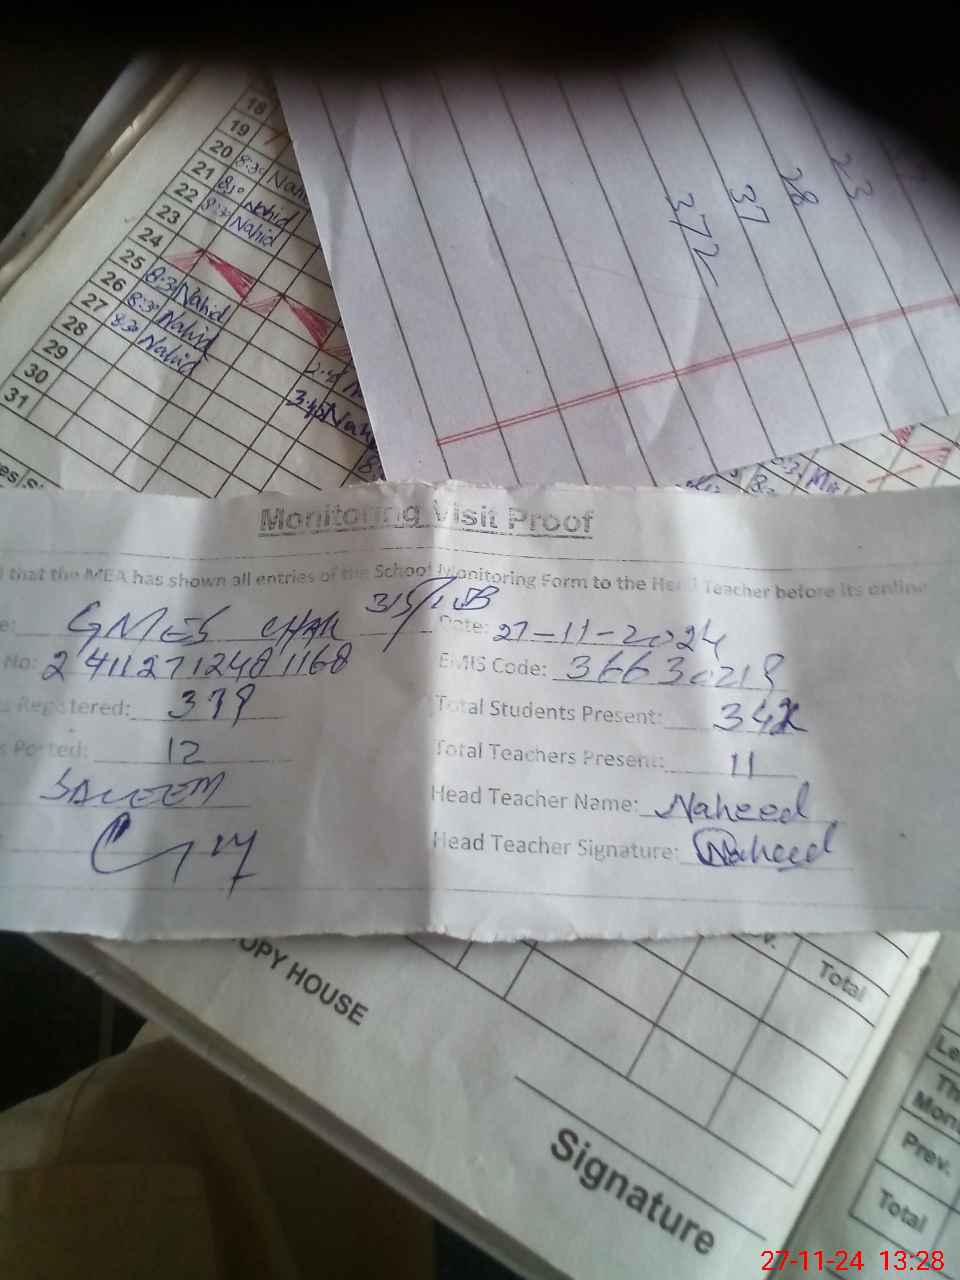 18
19
20 8:30 Nahid
21 8:30 Nahid
22 8:30 Nahid
23
24
25 8:30 Nahid
26 8:30 Nahid
27 8:30 Nahid
28
29
30
31
23
28
37
372
Monitoring Visit Proof
that the MEA has shown all entries of the School Monitoring Form to the Head Teacher before its online
GMES CHAK 315/1 Date: 27-11-2024
No: 24112712481168 EMIS Code: 36630219
Registered: 379 Total Students Present:
Posted: 12 Total Teachers Present: 11
SALEEM Head Teacher Name: Naheed
Head Teacher Signature: Naheed
OPY HOUSE
Total
Signature
Prev.
Total
27-11-24 13:28